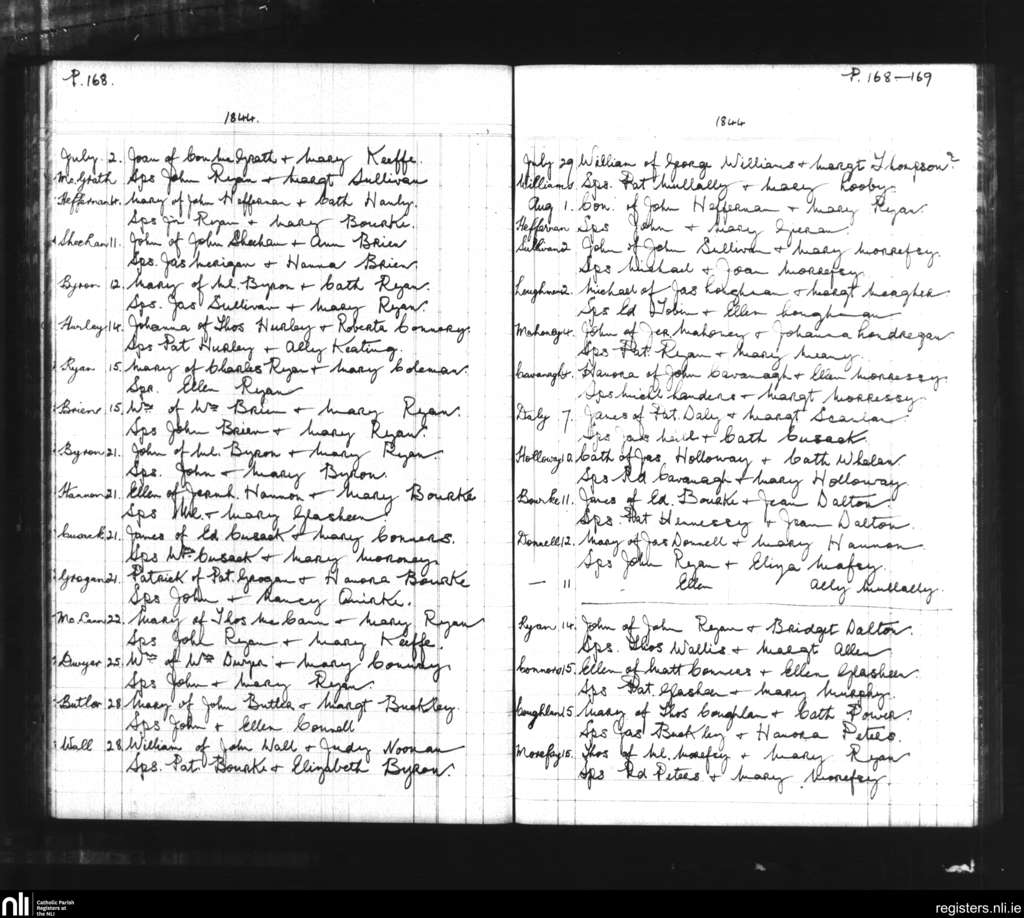 P. 168.
1844.
July 2. Joan of Con McGrath + Mary Keeffe.
McGrath Sps John Ryan + Margt Sullivan
Heffernan 4. Mary of John Heffernan + Cath Hanly.
Sps Jn Ryan + Mary Bourke.
Sheehan 11. John of John Sheehan + Ann Brien
Sps. Jas Merigan + Hanna Brien.
Byron 12. Mary of Ml. Byron + Cath Ryan.
Sps. Jas Sullivan + Mary Ryan.
Hurley 14. Johanna of Thos Hurley + Roberta Connory.
Sps Pat Hurley + Ally Keating.
Ryan 15. Mary of Charles Ryan + Mary Coleman.
Spr. Ellen Ryan
Brien 15. Wm of Wm Brien + Mary Ryan.
Sps John Brien + Mary Ryan.
Byron 21. John of Ml. Byron + Mary Ryan.
Sps. John + Mary Byron.
Hannon 21. Ellen of Jermh. Hannon + Mary Bourke
Sps Ml. + Mary Glasheen
Cusack 21. James of Ed Cusack + Mary Conners.
Sps Wm Cusack + Mary Moroney.
Grogan 21. Patrick of Pat. Grogan + Hanora Bourke
Sps John + Nancy Quirke.
McCann 22. Mary of Thos McCann + Mary Ryan
Sps John Ryan + Mary Keeffe.
Dwyer 25. Wm of Wm Dwyer + Mary Conway
Sps John + Mary Ryan.
Butler 28 Mary of John Butler + Margt Buckley.
Sps John + Ellen Connell
Wall 28 William of John Wall + Judy Noonan
Sps. Pat Bourke + Elizabeth Byron.
P. 168–169
1844
July 29 William of George Williams + Margt Thompson?
Williams. Sps. Pat Mullally + Mary Looby.
Aug 1. Con. of John Heffernan + Mary Ryan
Heffernan Sps John + Mary
Sullivan 2 John of John Sullivan + Mary Morresey.
Sps Michael + Joan Morresey.
Loughnan 2. Michael of Jas Loughnan + Margt Meagher.
Sps Ed Tobin + Ellen Loughnan
Mahoney 4. John of Jer Mahoney + Johanna Londregan
Sps Pat. Ryan + Mary Meany.
Cavanagh. Hanora of John Cavanagh + Ellen Morressy.
Sps Michl Landers + Margt Morressy
Daly 7. James of Pat. Daly + Margt Scanlan
Sps Jas + Cath Cusack.
Holloway 10. Cath of Jas Holloway + Cath Whelan
Sps Rd Cavanagh + Mary Holloway
Bourke 11. James of Ed. Bourke + Jean Dalton.
Sps Pat Hennessy + Jean Dalton.
Donnell 12. Mary of Jas Donnell + Mary Hannon
Sps John Ryan + Eliza
— 11 Ellen Ally Mullally.
Ryan 14. John of John Ryan + Bridget Dalton.
Sps. Thos Wallis + Margt Allen
Connors 15. Ellen of Matt Conners + Ellen Glasheen.
Sps Pat. Glashen + Mary Murphy.
Coughlan 15 Mary of Thos Coughlan + Cath Power.
Sps Jas Buckley + Hanora Peters.
Morefsy 15. Thos of Ml. Morefsy + Mary Ryan
Sps Rd Peters + Mary Morefsy.
nli
Catholic Parish
Registers at
the NLI
registers.nli.ie